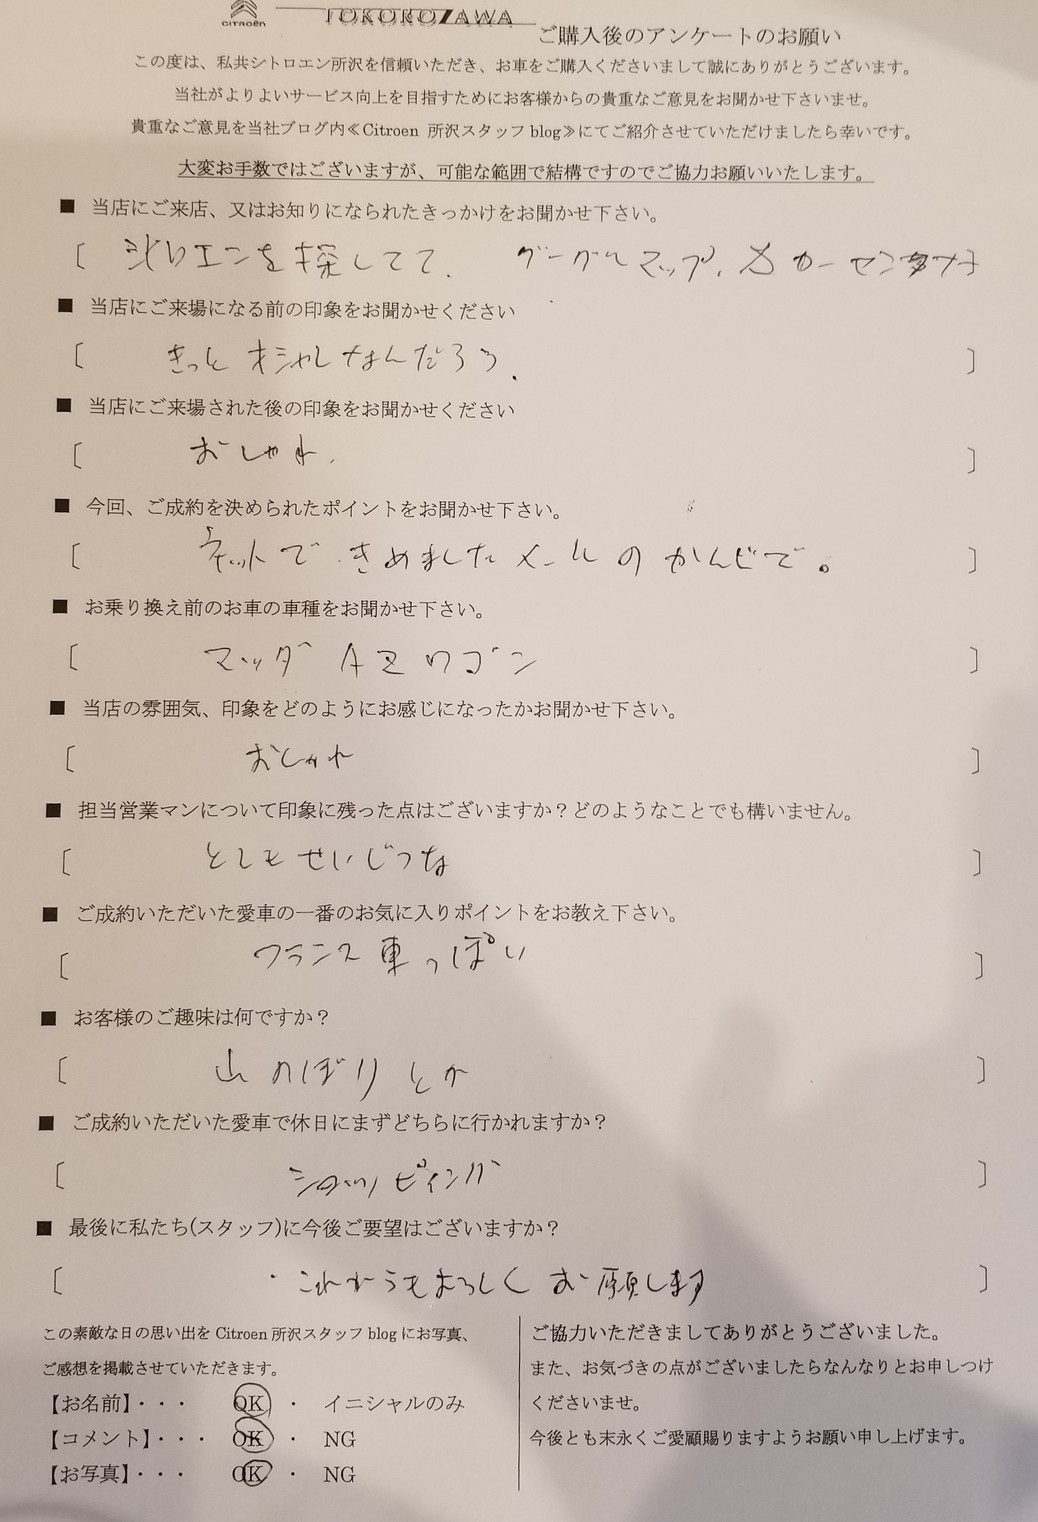 CITROËN TOKOROZAWA
ご購入後のアンケートのお願い
この度は、私共シトロエン所沢を信頼いただき、お車をご購入くださいまして誠にありがとうございます。
当社がよりよいサービス向上を目指すためにお客様からの貴重なご意見をお聞かせ下さいませ。
貴重なご意見を当社ブログ内≪Citroen 所沢スタッフ blog≫にてご紹介させていただけましたら幸いです。
大変お手数ではございますが、可能な範囲で結構ですのでご協力お願いいたします。
■ 当店にご来店、又はお知りになられたきっかけをお聞かせ下さい。
〔 シトロエンを探してて、 グーグルマップ、カーセンサー
■ 当店にご来場になる前の印象をお聞かせください
〔 きっとオシャレなんだろう. 〕
■ 当店にご来場された後の印象をお聞かせください
〔 おしゃれ. 〕
■ 今回、ご成約を決められたポイントをお聞かせ下さい。
〔 ネットできめましたメールのかんじで。 〕
■ お乗り換え前のお車の車種をお聞かせ下さい。
〔 マツダ AZワゴン 〕
■ 当店の雰囲気、印象をどのようにお感じになったかお聞かせ下さい。
〔 おしゃれ 〕
■ 担当営業マンについて印象に残った点はございますか？どのようなことでも構いません。
〔 とてもせいじつな 〕
■ ご成約いただいた愛車の一番のお気に入りポイントをお教え下さい。
〔 フランス車っぽい 〕
■ お客様のご趣味は何ですか？
〔 山のぼりとか 〕
■ ご成約いただいた愛車で休日にまずどちらに行かれますか？
〔 ショッピィング 〕
■ 最後に私たち(スタッフ)に今後ご要望はございますか？
〔 ・これからもよろしくお願します 〕
この素敵な日の思い出を Citroen 所沢スタッフ blog にお写真、
ご感想を掲載させていただきます。
【お名前】・・・ OK ・ イニシャルのみ
【コメント】・・・ OK ・ NG
【お写真】・・・ OK ・ NG
ご協力いただきましてありがとうございました。
また、お気づきの点がございましたらなんなりとお申しつけ
くださいませ。
今後とも末永くご愛顧賜りますようお願い申し上げます。